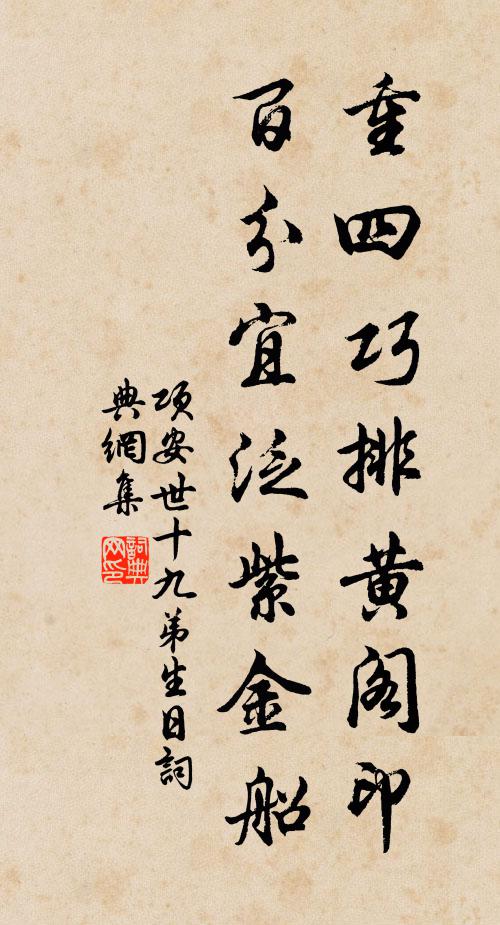 重四巧排黄阁印
百分宜泛紫金船
项安世十九弟生日詞
典網集
詞典
网印